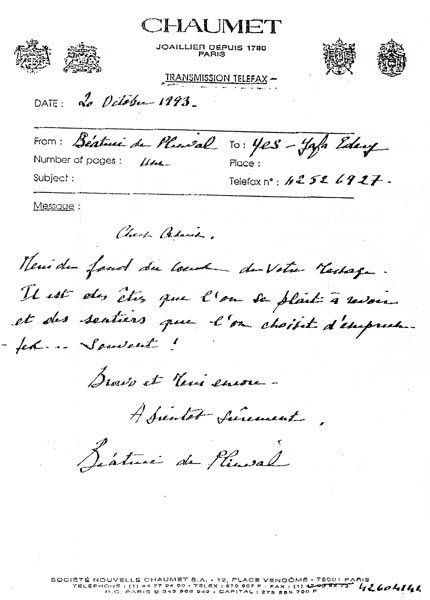 CHAUMET
JOAILLIER DEPUIS 1780
PARIS
TRANSMISSION TELEFAX
DATE : 20 Octobre 1993.
From : Béatrice de Plinval To : YES - Edery
Number of pages : une Place :
Subject : Telefax n° : 42526927.
Message :
Merci du fond du coeur de votre Message.
Il est des êtres que l'on se plait à revoir
et des sentiers que l'on choisit d'emprun-
ter... Souvent !
Bravo et Merci encore -
A bientôt sûrement.
Béatrice de Plinval
SOCIÉTÉ NOUVELLE CHAUMET S.A. - 12, PLACE VENDÔME - 75001 PARIS
TÉLÉPHONE : (1) 44 77 24 00 - TELEX : 670 907 F - FAX : (1) 42604141
R.C. PARIS B - CAPITAL :